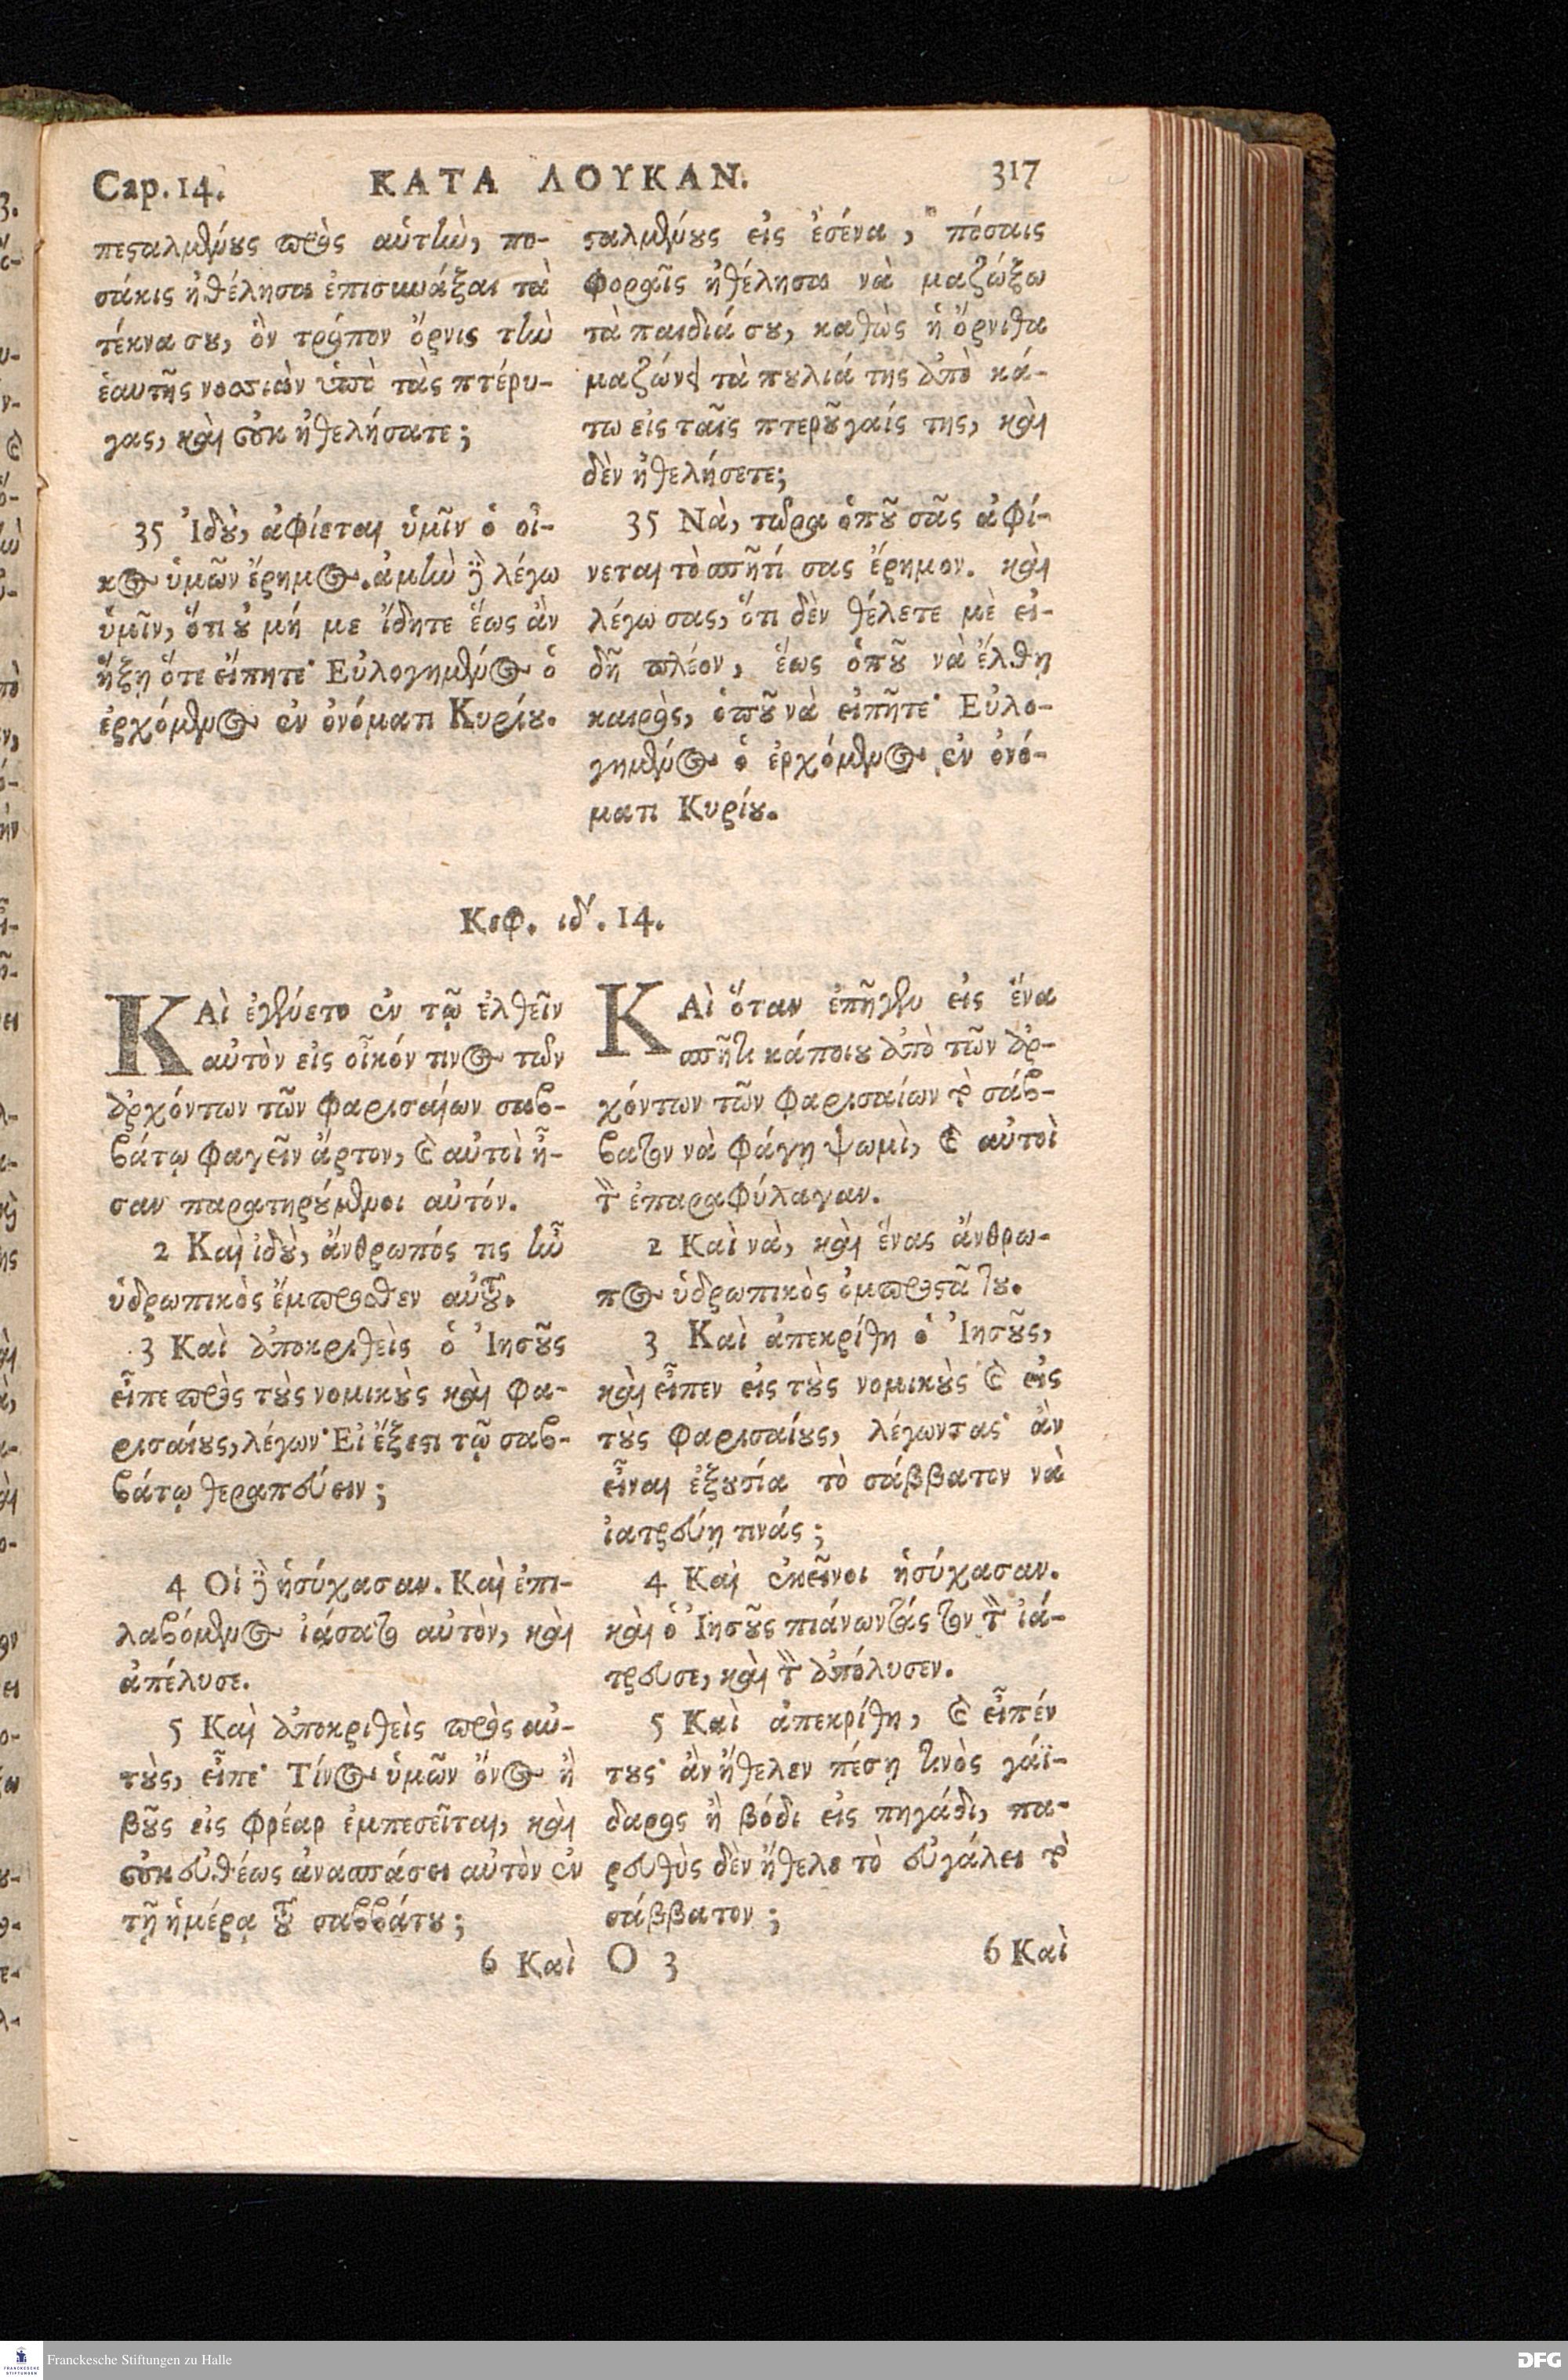 Cap. 14. ΚΑΤΑ ΛΟΥΚΑΝ. 317
πεσταλμένους πρὸς αὑτὴν, πο-
σάκις ἠθέλησα ἐπισυνάξαι τὰ
τέκνα σου, ὃν τρόπον ὄρνις τὴν
ἑαυτῆς νοσσιὰν ὑπὸ τὰς πτέρυ-
γας, καὶ οὐκ ἠθελήσατε;
35 Ἰδοὺ, ἀφίεται ὑμῖν ὁ οἶ-
κος ὑμῶν ἔρημος. ἀμὴν δὲ λέγω
ὑμῖν, ὅτι οὐ μή με ἴδητε ἕως ἂν
ἥξῃ ὅτε εἴπητε· Εὐλογημένος ὁ
ἐρχόμενος ἐν ὀνόματι Κυρίου.
σταλμένους εἰς ἐσένα, πόσαις
φοραῖς ἠθέλησα νὰ μαζώξω
τὰ παιδιά σου, καθὼς ἡ ὄρνιθα
μαζώνει τὰ πουλιά της ἀπὸ κά-
τω εἰς ταῖς πτεροῦγαίς της, καὶ
δὲν ἠθελήσετε;
35 Νὰ, τώρα ὁποῦ σᾶς ἀφί-
νεται τὸ σπῆτί σας ἔρημον. καὶ
λέγω σας, ὅτι δὲν θέλετε μὲ εἰ-
δῆ πλέον, ἕως ὁποῦ νὰ ἔλθῃ
καιρὸς, ὁποῦ νὰ εἰπῆτε· Εὐλο-
γημένος ὁ ἐρχόμενος ἐν ὀνό-
ματι Κυρίου.
Κεφ. ιδʹ. 14.
ΚΑὶ ἐγένετο ἐν τῷ ἐλθεῖν
αὐτὸν εἰς οἶκόν τινος τῶν
ἀρχόντων τῶν Φαρισαίων σαβ-
βάτῳ φαγεῖν ἄρτον, καὶ αὐτοὶ ἦ-
σαν παρατηρούμενοι αὐτόν.
2 Καὶ ἰδοὺ, ἄνθρωπός τις ἦν
ὑδρωπικὸς ἔμπροσθεν αὐτοῦ.
3 Καὶ ἀποκριθεὶς ὁ Ἰησοῦς
εἶπε πρὸς τοὺς νομικοὺς καὶ Φα-
ρισαίους, λέγων· Εἰ ἔξεστι τῷ σαβ-
βάτῳ θεραπεύειν;
4 Οἱ δὲ ἡσύχασαν. Καὶ ἐπι-
λαβόμενος ἰάσατο αὐτὸν, καὶ
ἀπέλυσε.
5 Καὶ ἀποκριθεὶς πρὸς αὐ-
τοὺς, εἶπε· Τίνος ὑμῶν ὄνος ἢ
βοῦς εἰς φρέαρ ἐμπεσεῖται, καὶ
οὐκ εὐθέως ἀνασπάσει αὐτὸν ἐν
τῇ ἡμέρᾳ τοῦ σαββάτου;
6 Καὶ
ΚΑὶ ὅταν ἐπῆγεν εἰς ἕνα
σπῆτι κάποιου ἀπὸ τῶν ἀρ-
χόντων τῶν Φαρισαίων τὸ σάβ-
βατον νὰ φάγῃ ψωμὶ, καὶ αὐτοὶ
τὸν ἐπαραφύλαγαν.
2 Καὶ νὰ, καὶ ἕνας ἄνθρω-
πος ὑδρωπικὸς ὀμπροστά του.
3 Καὶ ἀπεκρίθη ὁ Ἰησοῦς,
καὶ εἶπεν εἰς τοὺς νομικοὺς καὶ εἰς
τοὺς Φαρισαίους, λέγωντας· ἂν
εἶναι ἐξουσία τὸ σάββατον νὰ
ἰατρεύῃ τινάς;
4 Καὶ ἐκεῖνοι ἡσύχασαν.
καὶ ὁ Ἰησοῦς πιάνωντάς τον τὸν ἰά-
τρευσε, καὶ τὸν ἀπόλυσεν.
5 Καὶ ἀπεκρίθη, καὶ εἶπέν
τους· ἂν ἤθελεν πέσῃ τινὸς γάϊ-
δαρος ἢ βόδι εἰς πηγάδι, πα-
ρευθὺς δὲν ἤθελε τὸ εὐγάλει τὸ
σάββατον;
O 3 6 Καὶ
Franckesche Stiftungen zu Halle
FRANCKESCHE STIFTUNGEN
DFG